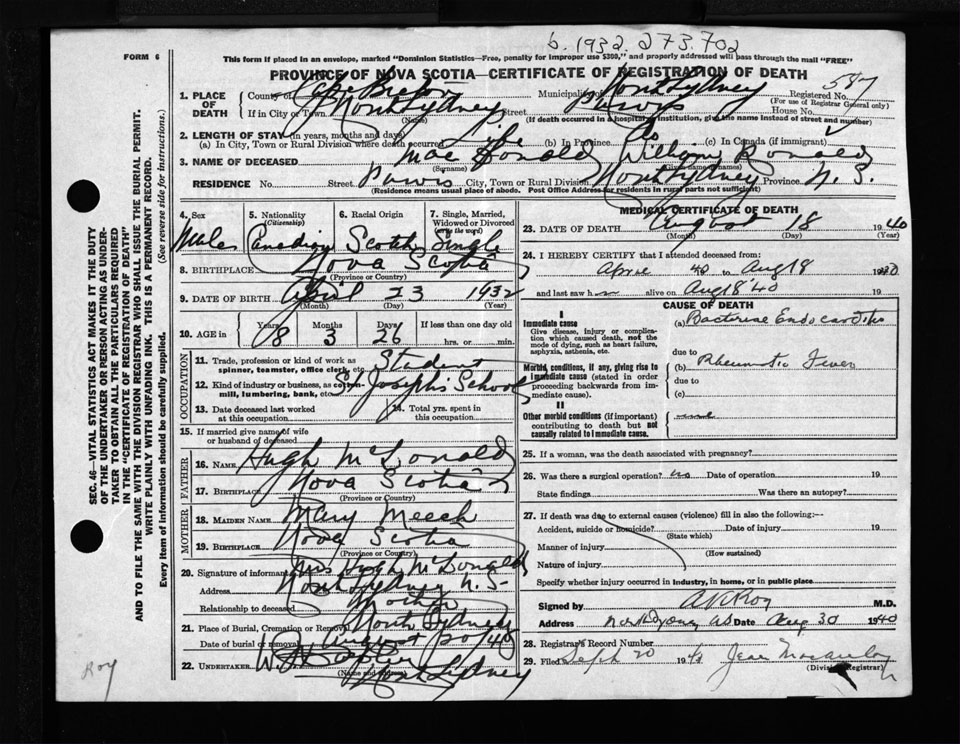 b. 1932. 273.702
FORM 6
This form if placed in an envelope, marked "Dominion Statistics—Free, penalty for improper use $300," and properly addressed will pass through the mail "FREE"
PROVINCE OF NOVA SCOTIA—CERTIFICATE OF REGISTRATION OF DEATH
1. PLACE OF DEATH County of Cape Breton Municipality of North Sydney Registered No. 547
(For use of Registrar General only)
If in City or Town North Sydney Street House No.
(Name) (If death occurred in a hospital or institution, give the name instead of street and number)
2. LENGTH OF STAY (in years, months and days)
(a) In City, Town or Rural Division where death occurred Life (b) In Province do (c) In Canada (if immigrant)
3. NAME OF DECEASED Mac Donald William Ronald
(Surname)
RESIDENCE No. Street City, Town or Rural Division North Sydney Province N. S.
(Residence means usual place of abode. Post Office Address for residents in rural parts not sufficient)
4. Sex Male
5. Nationality (Citizenship) Canadian
6. Racial Origin Scotch
7. Single, Married, Widowed or Divorced (write the word) Single
8. BIRTHPLACE Nova Scotia
(Province or Country)
9. DATE OF BIRTH April 23 1932
(Month) (Day) (Year)
10. AGE in Years 8 Months 3 Days 26 If less than one day old hrs. or min.
OCCUPATION
11. Trade, profession or kind of work as spinner, teamster, office clerk, etc. Student
12. Kind of industry or business, as cotton-mill, lumbering, bank, etc. St Joseph's School
13. Date deceased last worked at this occupation
14. Total yrs. spent in this occupation
15. If married give name of wife or husband of deceased
FATHER
16. NAME Hugh McDonald
17. BIRTHPLACE Nova Scotia
(Province or Country)
MOTHER
18. MAIDEN NAME Mary Meech
19. BIRTHPLACE Nova Scotia
(Province or Country)
20. Signature of informant Mrs Hugh McDonald
Address North Sydney N. S.
Relationship to deceased Mother
21. Place of Burial, Cremation or Removal North Sydney
Date of burial or removal August 20 40
22. UNDERTAKER
(Name and address) North Sydney
MEDICAL CERTIFICATE OF DEATH
23. DATE OF DEATH August 18 1940
(Month) (Day) (Year)
24. I HEREBY CERTIFY that I attended deceased from:
April 40 to Aug 18 1940
and last saw h alive on Aug 18 '40 19
CAUSE OF DEATH
I
Immediate cause
Give disease, injury or complication which caused death, not the mode of dying, such as heart failure, asphyxia, asthenia, etc.
(a) Bacterial Endocarditis
due to
Morbid conditions, if any, giving rise to immediate cause (stated in order proceeding backwards from immediate cause).
(b) Rheumatic Fever
due to
(c)
II
Other morbid conditions (if important) contributing to death but not causally related to immediate cause.
25. If a woman, was the death associated with pregnancy?
26. Was there a surgical operation? no Date of operation 19
State findings Was there an autopsy?
27. If death was due to external causes (violence) fill in also the following:—
Accident, suicide or homicide? Date of injury 19
(State which)
Manner of injury
(How sustained)
Nature of injury
Specify whether injury occurred in industry, in home, or in public place
Signed by A R Roy M.D.
Address North Sydney NS Date Aug 30 1940
28. Registrar's Record Number
29. Filed Sept 20 19 Jean
(Division Registrar)
SEC. 46—VITAL STATISTICS ACT MAKES IT THE DUTY OF THE UNDERTAKER OR PERSON ACTING AS UNDERTAKER TO OBTAIN ALL THE PARTICULARS REQUIRED IN THE "CERTIFICATE OF REGISTRATION OF DEATH" AND TO FILE THE SAME WITH THE DIVISION REGISTRAR WHO SHALL ISSUE THE BURIAL PERMIT.
WRITE PLAINLY WITH UNFADING INK. THIS IS A PERMANENT RECORD.
Every item of information should be carefully supplied. (See reverse side for instructions.)
Roy